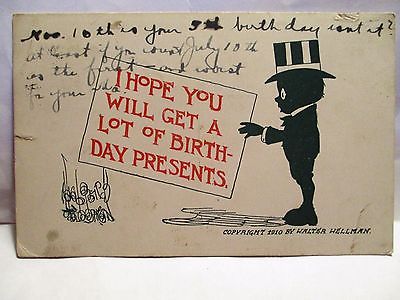 Nov. 10th is your 5th birthday isn't it?
at least if you count July 10th
as the first - and
for your
I HOPE YOU
WILL GET A
LOT OF BIRTH-
DAY PRESENTS.
COPYRIGHT 1910 BY WALTER WELLMAN.